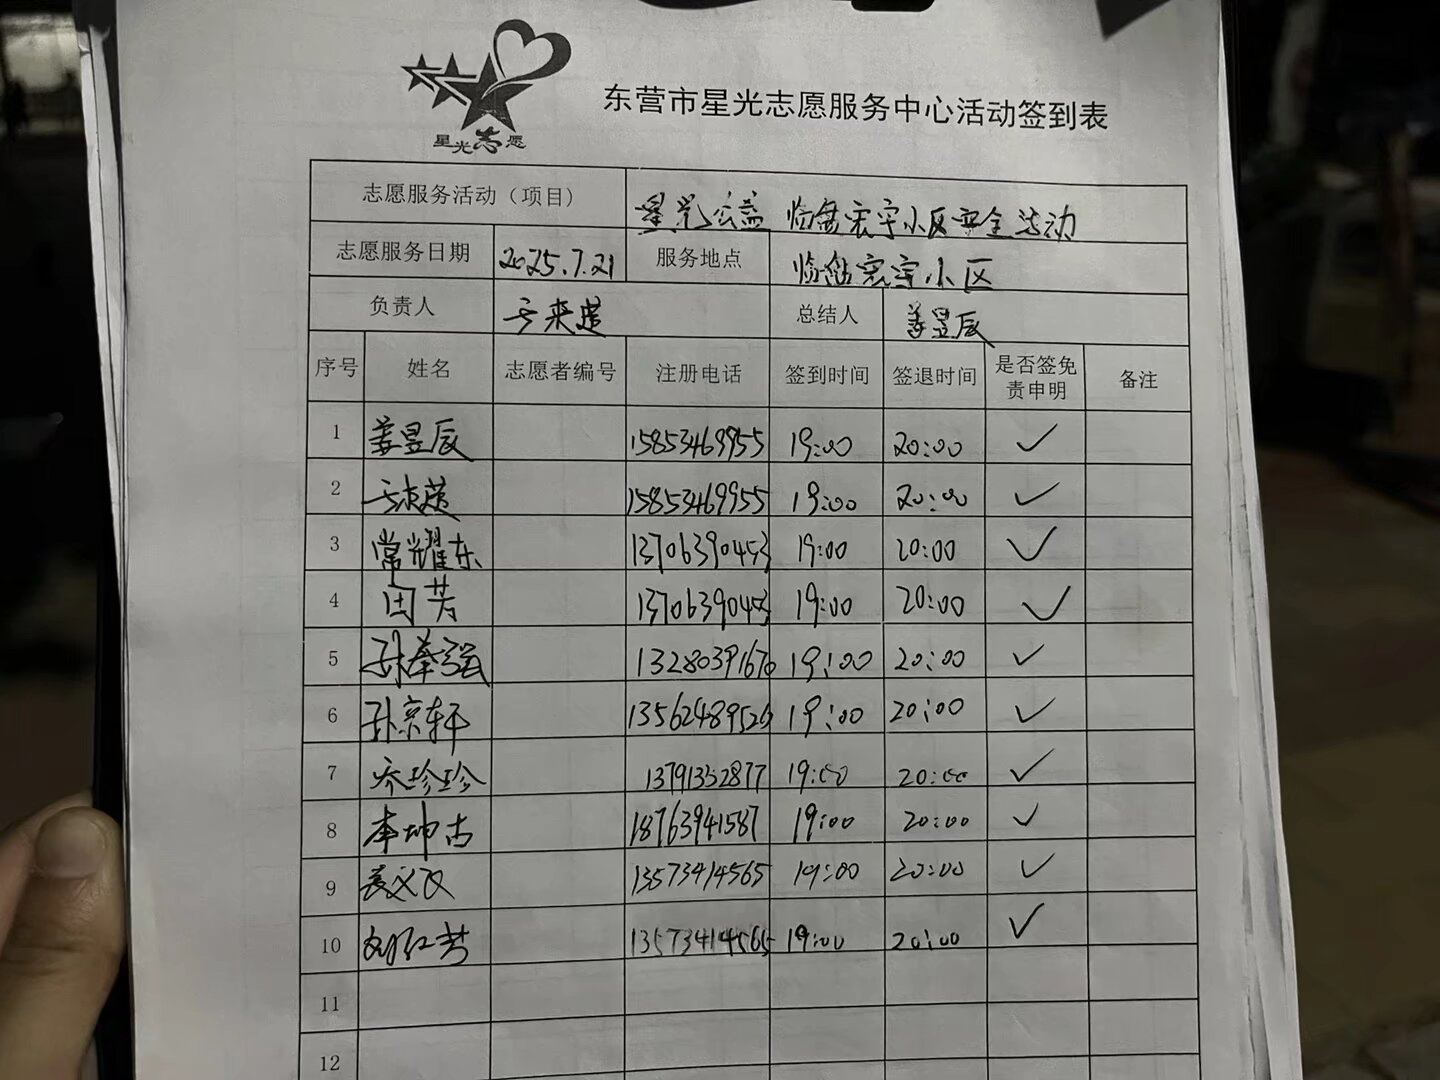 星光志愿
东营市星光志愿服务中心活动签到表
志愿服务活动（项目） 星光公益 临盘宏宇小区安全活动
志愿服务日期 2025.7.21 服务地点 临盘宏宇小区
负责人 来超 总结人 姜昱辰
序号 姓名 志愿者编号 注册电话 签到时间 签退时间 是否签免责申明 备注
1 姜昱辰 15853469955 19:00 20:00 ✓
2 来超 15853469955 19:00 20:00 ✓
3 常耀东 13706390453 19:00 20:00 ✓
4 田芳 13706390453 19:00 20:00 ✓
5 孙奉强 13280391670 19:00 20:00 ✓
6 孙京轩 13562489526 19:00 20:00 ✓
7 乔珍珍 13791332877 19:00 20:00 ✓
8 李坤杰 18763941587 19:00 20:00 ✓
9 姜义飞 13573414565 19:00 20:00 ✓
10 刘红芳 13573414565 19:00 20:00 ✓
11
12